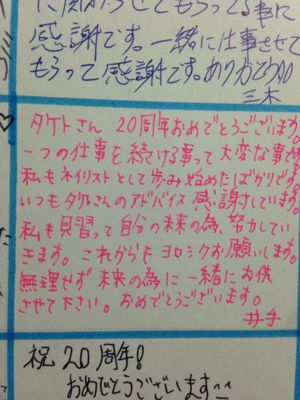 に関わらせてもらってる事に
感謝です。一緒に仕事させて
もらって感謝です。ありがとう
三木
タケトさん 20周年おめでとうございます。
一つの仕事を続ける事って大変な事
私もネイリストとして歩み始めたばかりです。
いつもタケトさんのアドバイス感謝しています。
私も見習って自分の未来の為、努力してい
きます。これからもヨロシクお願いします。
無理せず未来の為に一緒にお供
させて下さい。おめでとうございます。
井手
祝20周年!
おめでとうございます^^